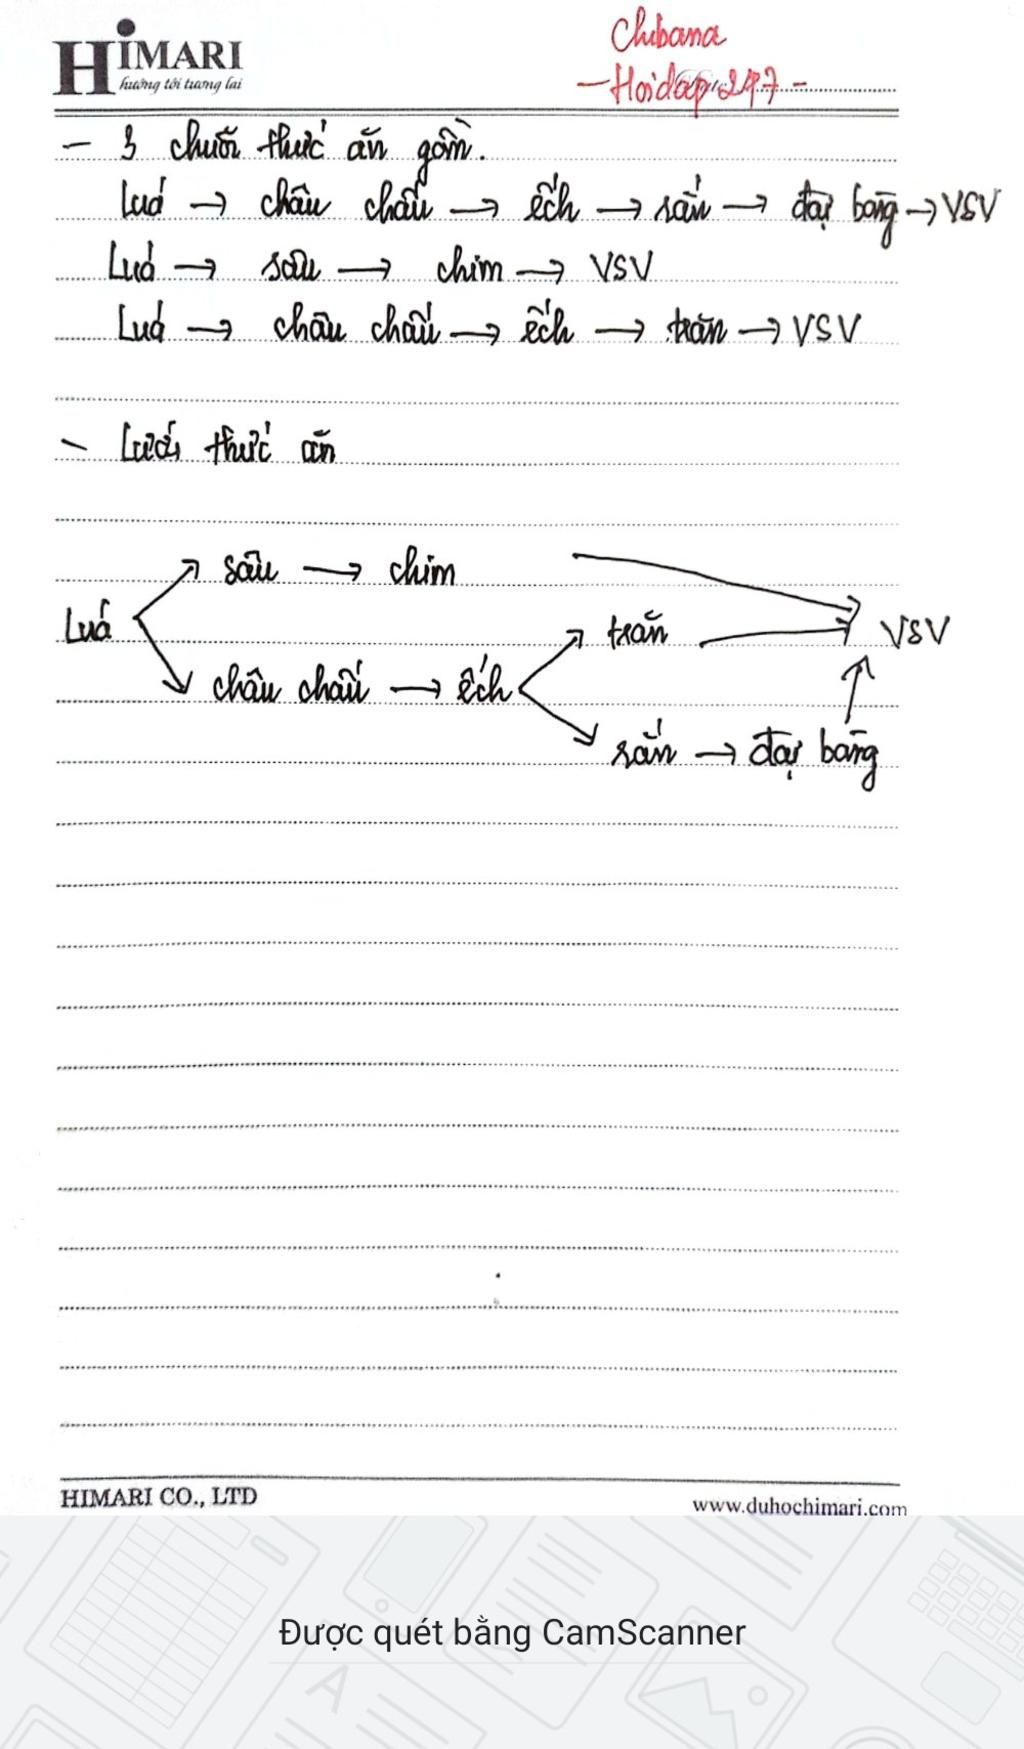 HIMARI
hướng tới tương lai
Chibana
- Hoidap247 -
- 3 chuỗi thức ăn gồm.
Luá → châu chấu → ếch → rắn → đại bàng → VSV
Luá → sâu → chim → VSV
Luá → châu chấu → ếch → trăn → VSV
- Lưới thức ăn
sâu → chim
Luá
trăn
VSV
châu chấu → ếch
rắn → đại bàng
HIMARI CO., LTD
www.duhochimari.com
Được quét bằng CamScanner